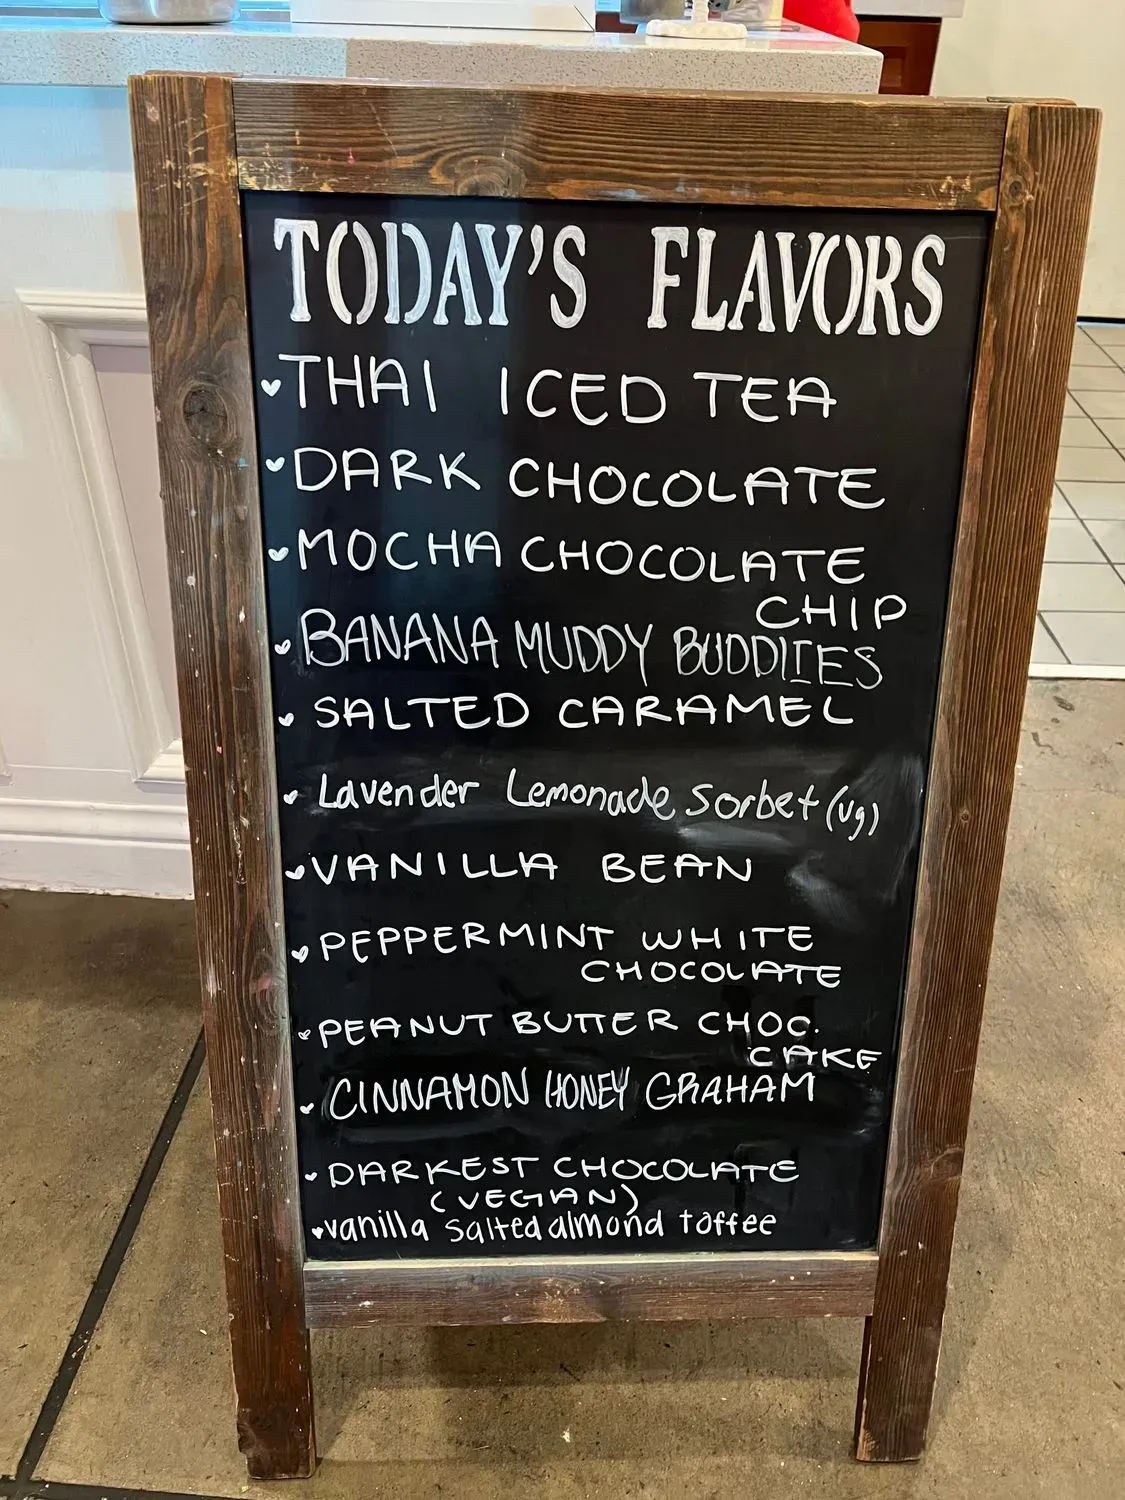 TODAY'S FLAVORS
THAI ICED TEA
DARK CHOCOLATE
MOCHA CHOCOLATE
CHIP
BANANA MUDDY BUDDIES
SALTED CARAMEL
Lavender Lemonade Sorbet (vg)
VANILLA BEAN
PEPPERMINT WHITE
CHOCOLATE
PEANUT BUTTER CHOC.
CAKE
CINNAMON HONEY GRAHAM
DARKEST CHOCOLATE
(VEGAN)
vanilla salted almond toffee